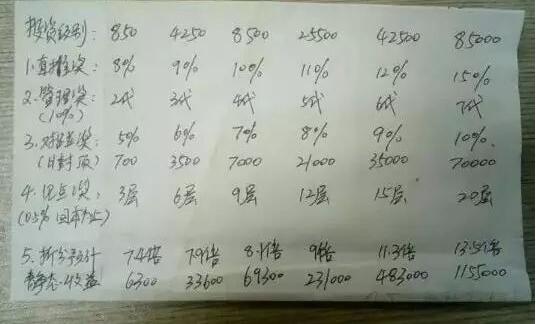 投资级别: 850 4250 8500 25500 42500 85000
1.直推奖: 8% 9% 10% 11% 12% 15%
2.管理奖: 2代 3代 4代 5代 6代 7代
(10%)
3.对碰奖: 5% 6% 7% 8% 9% 10%
(日封顶) 700 3500 7000 21000 35000 70000
4.见点奖: 3层 6层 9层 12层 15层 20层
(0.5%
5.拆分预计 7.4倍 7.9倍 8.1倍 9倍 11.3倍 13.5倍
静态收益 6300 33600 69300 231000 483000 1155000